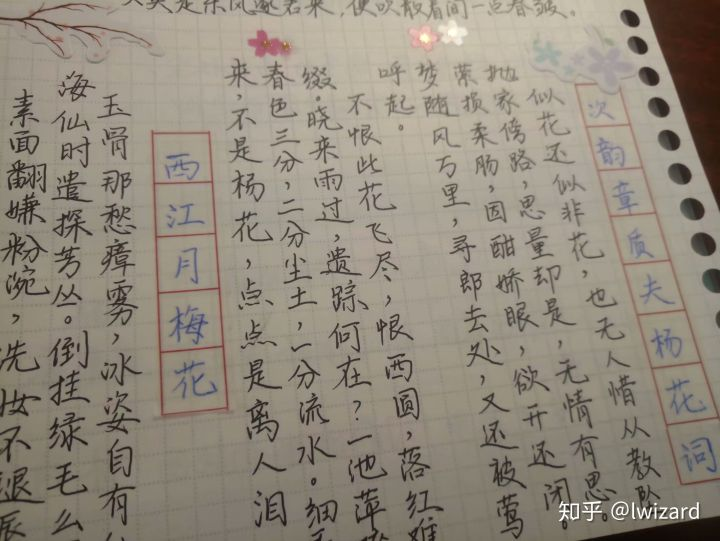 莫是东风逐君来,便吹散眉间一点春皱。
次韵章质夫杨花词
似花还似非花,也无人惜从教
抛家傍路,思量却是,无情有思。
萦损柔肠,因酣娇眼,欲开还闭。
梦随风万里,寻郎去处,又还被莺
呼起。
不恨此花飞尽,恨西圆,落红难
缀。晓来雨过,遗踪何在?一池萍
春色三分,二分尘土,一分流水。细
来,不是杨花,点点是离人泪
西江月梅花
玉骨那愁瘴雾,冰姿自有
海仙时遣探芳丛。倒挂绿毛么
素面翻嫌粉涴,洗妆不退唇
知乎 @lwizard